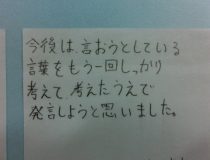 今後は、言おうとしている
言葉をもう一回しっかり
考えて、考えたうえで
発言しようと思いました。